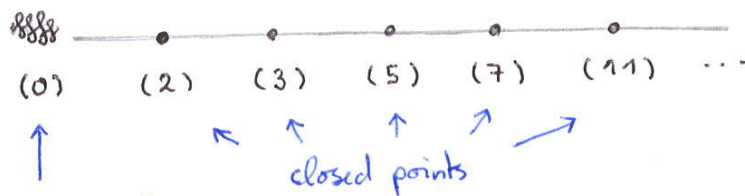 (0) (2) (3) (5) (7) (11) ...
closed points